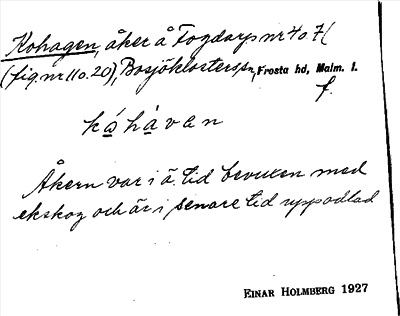 Kohagen, åker å Fogdarp nr 4 o 7(
(fig. nr 11 o. 20), Bosjöklosters sn, Frosta hd, Malm. l.
f.
kó̲hà̲van
Åkern var i ä. tid bevuxen med
ekskog och är i senare tid uppodlad
EINAR HOLMBERG 1927